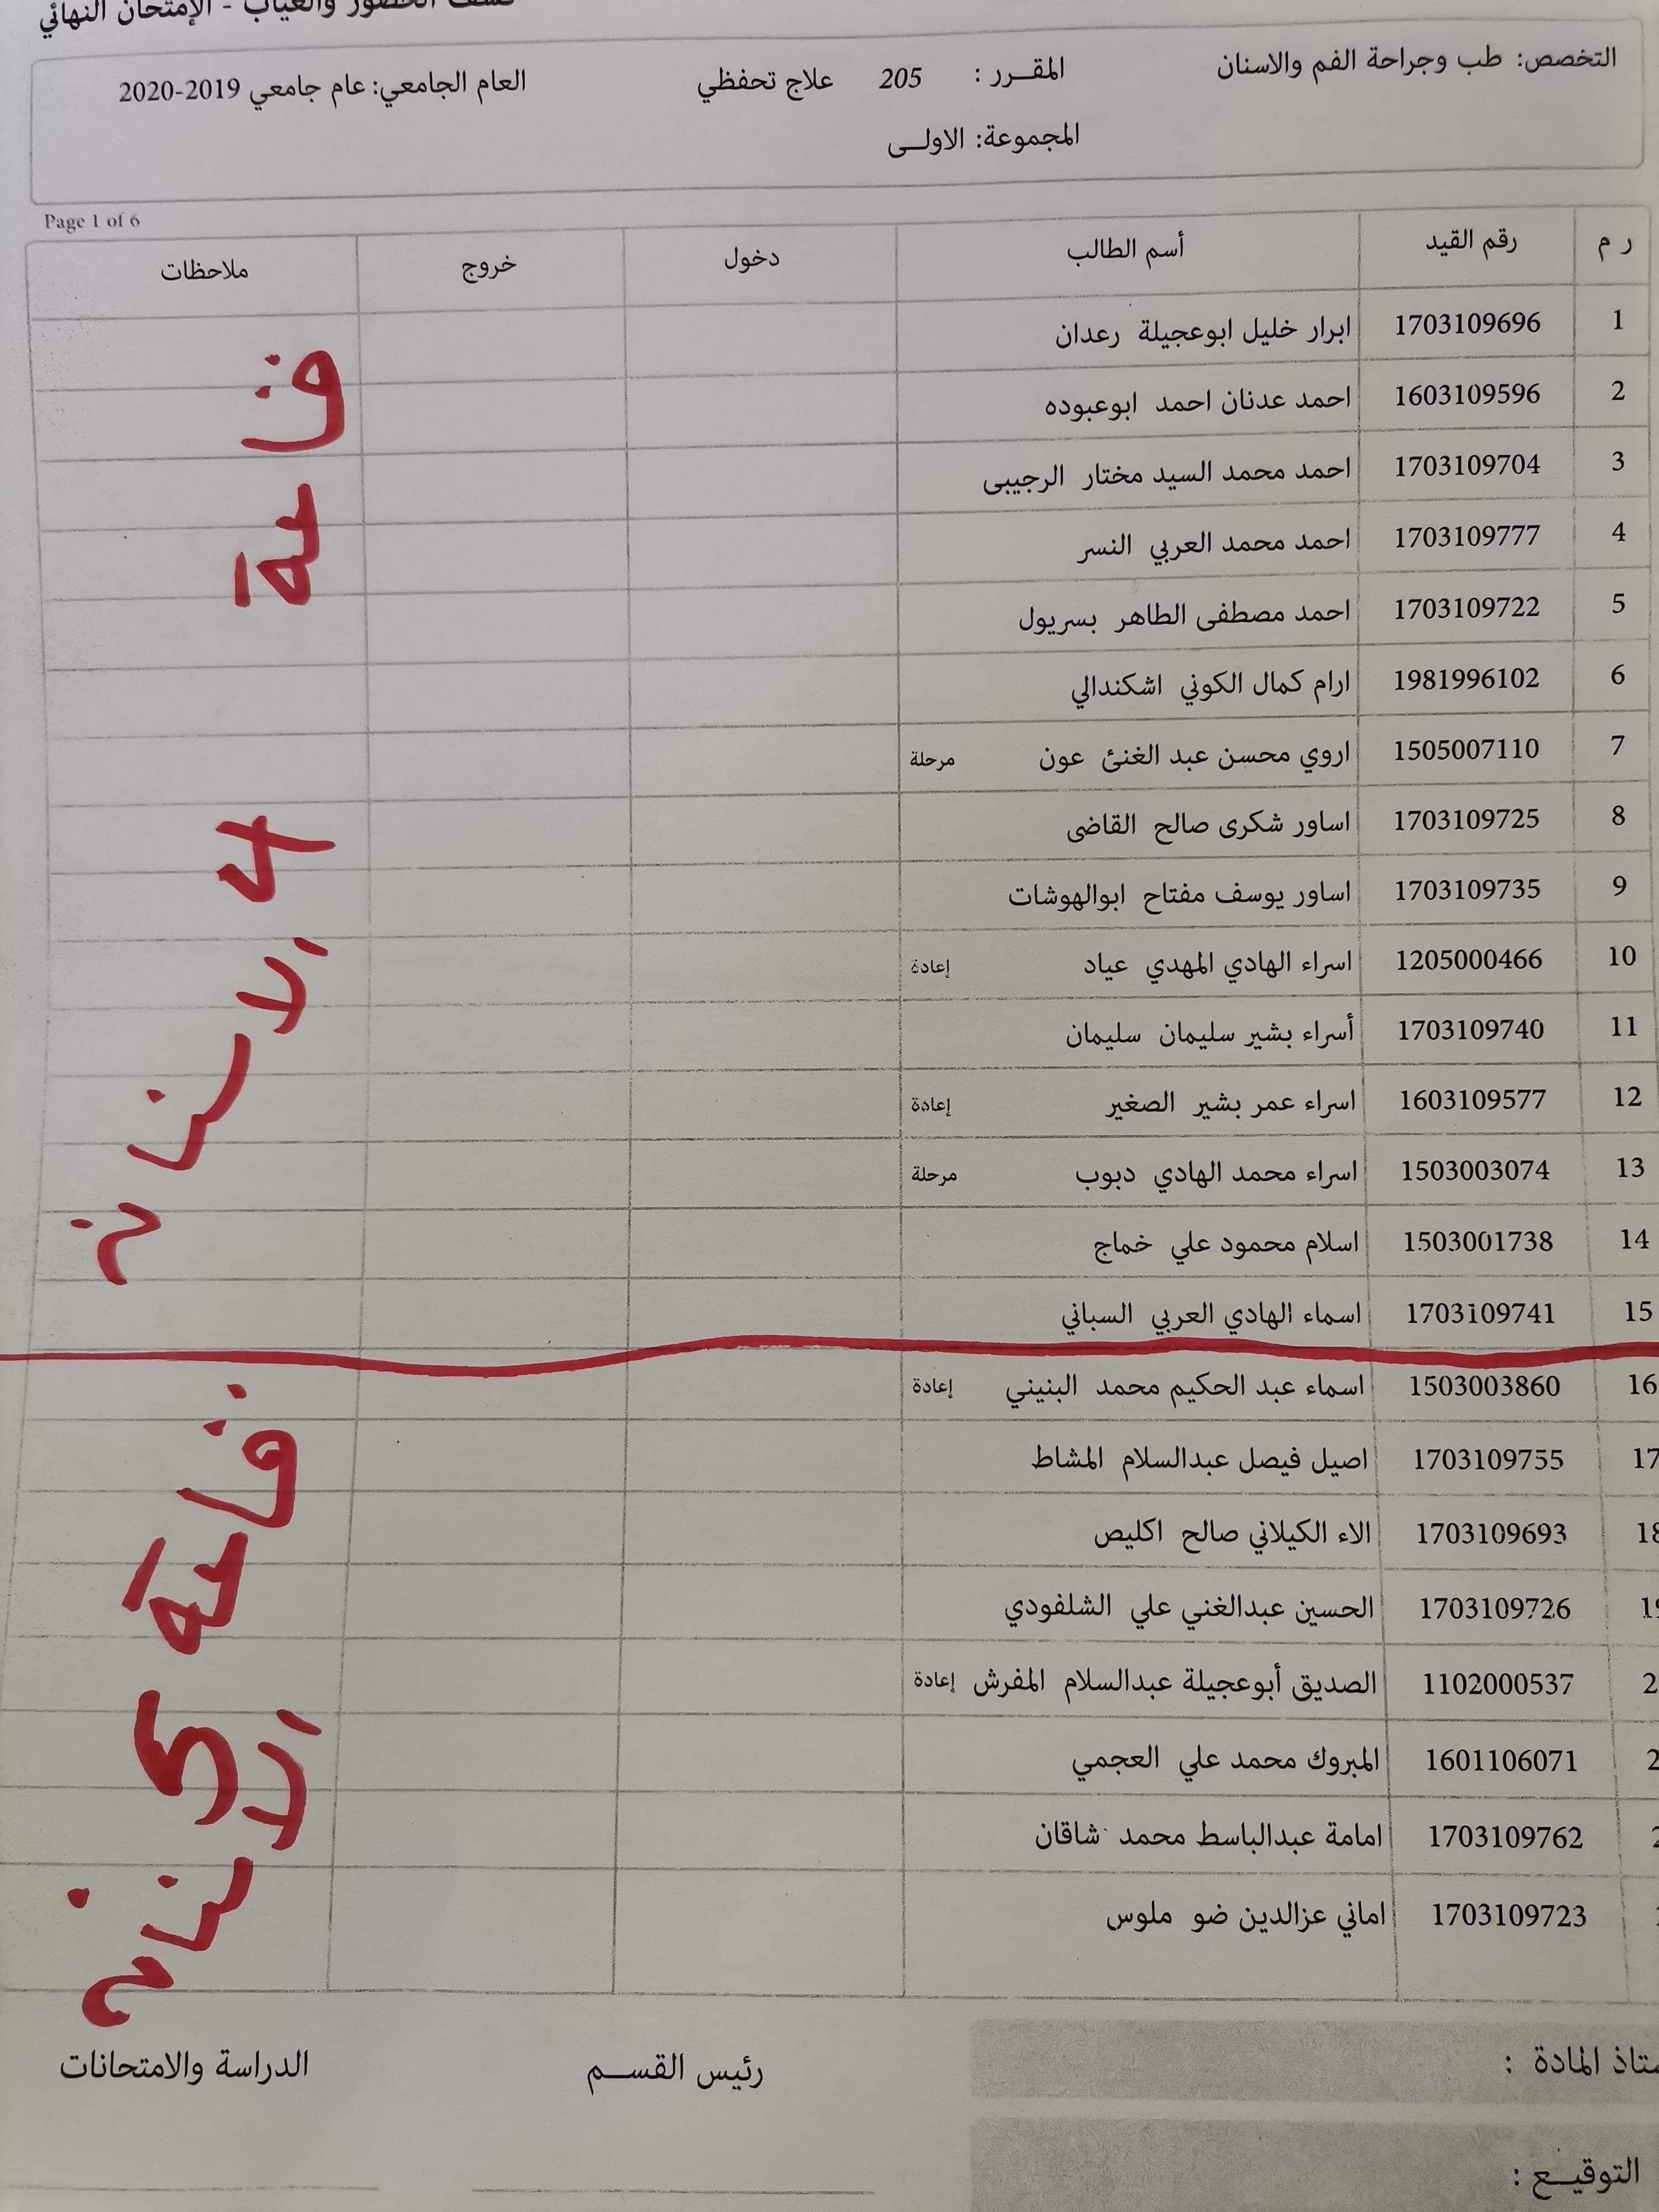 كشف الحضور والغياب - الإمتحان النهائي
التخصص: طب وجراحة الفم والاسنان المقـرر : 205 علاج تحفظي العام الجامعي: عام جامعي 2019-2020
المجموعة: الاولـى
Page 1 of 6
ر م رقم القيد أسم الطالب دخول خروج ملاحظات
1 1703109696 ابرار خليل ابوعجيلة رعدان
2 1603109596 احمد عدنان احمد ابوعبوده
3 1703109704 احمد محمد السيد مختار الرجيبى
4 1703109777 احمد محمد العربي النسر
5 1703109722 احمد مصطفى الطاهر بسريول
6 1981996102 ارام كمال الكوني اشكندالي
7 1505007110 اروي محسن عبد الغنئ عون مرحلة
8 1703109725 اساور شكرى صالح القاضى
9 1703109735 اساور يوسف مفتاح ابوالهوشات
10 1205000466 اسراء الهادي المهدي عياد إعادة
11 1703109740 أسراء بشير سليمان سليمان
12 1603109577 اسراء عمر بشير الصغير إعادة
13 1503003074 اسراء محمد الهادي دبوب مرحلة
14 1503001738 اسلام محمود علي خماج
15 1703109741 اسماء الهادي العربي السباني
قاعة 4 الاسنان
16 1503003860 اسماء عبد الحكيم محمد البنيني إعادة
17 1703109755 اصيل فيصل عبدالسلام المشاط
18 1703109693 الاء الكيلاني صالح اكليص
1703109726 الحسين عبدالغني علي الشلفودي
1102000537 الصديق أبوعجيلة عبدالسلام المفرش إعادة
1601106071 المبروك محمد علي العجمي
1703109762 امامة عبدالباسط محمد شاقان
1703109723 اماني عزالدين ضو ملوس
قاعة 5 الاسنان
ستاذ المادة : رئيس القسـم الدراسة والامتحانات
التوقيـع :